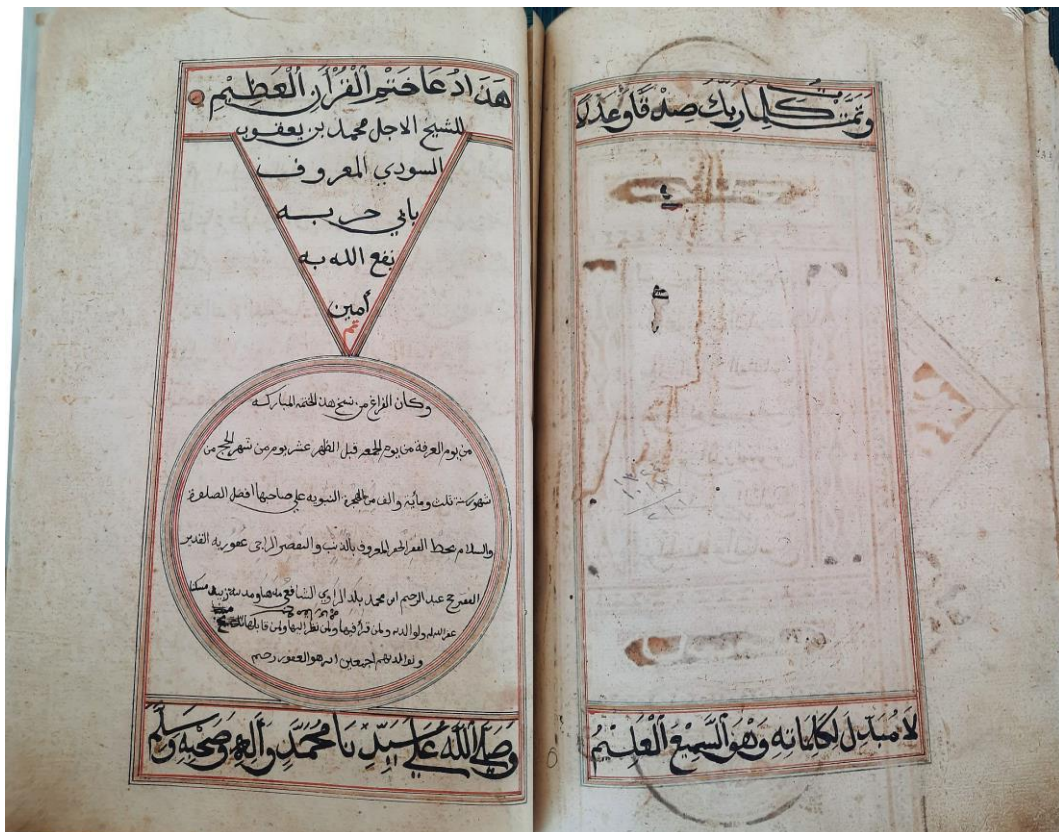 وَتَمَّتْ كَلِمَاتُ رَبِّكَ صِدْقًا وَعَدْلًا
لَا مُبَدِّلَ لِكَلِمَاتِهِ وَهُوَ السَّمِيعُ الْعَلِيمُ
هَذَا دُعَا خَتْمِ الْقُرْآنِ الْعَظِيْمِ
للشيخ الاجل محمد بن يعقوب
السودي المعروف
بابي حربه
نفع الله به
امين
تم
وكان الفراغ من نسخ هذه الختمه المباركه
من يوم العرفة من يوم الجمعه قبل الظهر عشر يوم من شهر الحج من
شهور سنة ثلث ومأية والف من الهجرة النبويه على صاحبها افضل الصلوة
والسلام بخط الفقير الحقير المعروف بالذنب والتقصير الراجي عفو ربه القدير
الفقير عبد الرحيم ابن محمد الشافعي مذهبا ومدينة زبيد مسكنا
غفر الله له ولوالديه ولمن قرأ فيها ولمن نظر اليها ولمن قابلها
ولوالديهم اجمعين انه هو الغفور رحيم
وَصَلَّى اللَّهُ عَلَى سَيِّدِنَا مُحَمَّدٍ وَآلِهِ وَصَحْبِهِ وَسَلَّمَ